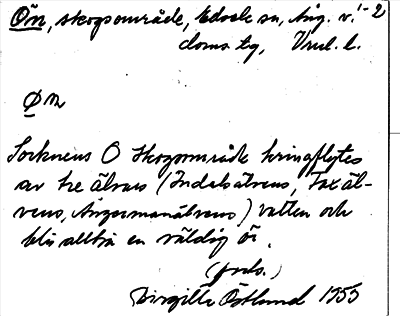 Ön, skogsområde, Edsele sn, Ång. v:l-2
doms tg, Vnrl. l.
Øn
Socknens Ö Skogsområde kringflytes
av tre älvars (Indalsälvens, Faxäl-
vens, Ångermanälvens) vatten och
blir alltså en väldig ö.
(Ords.)
Birgitta Östlund 1955